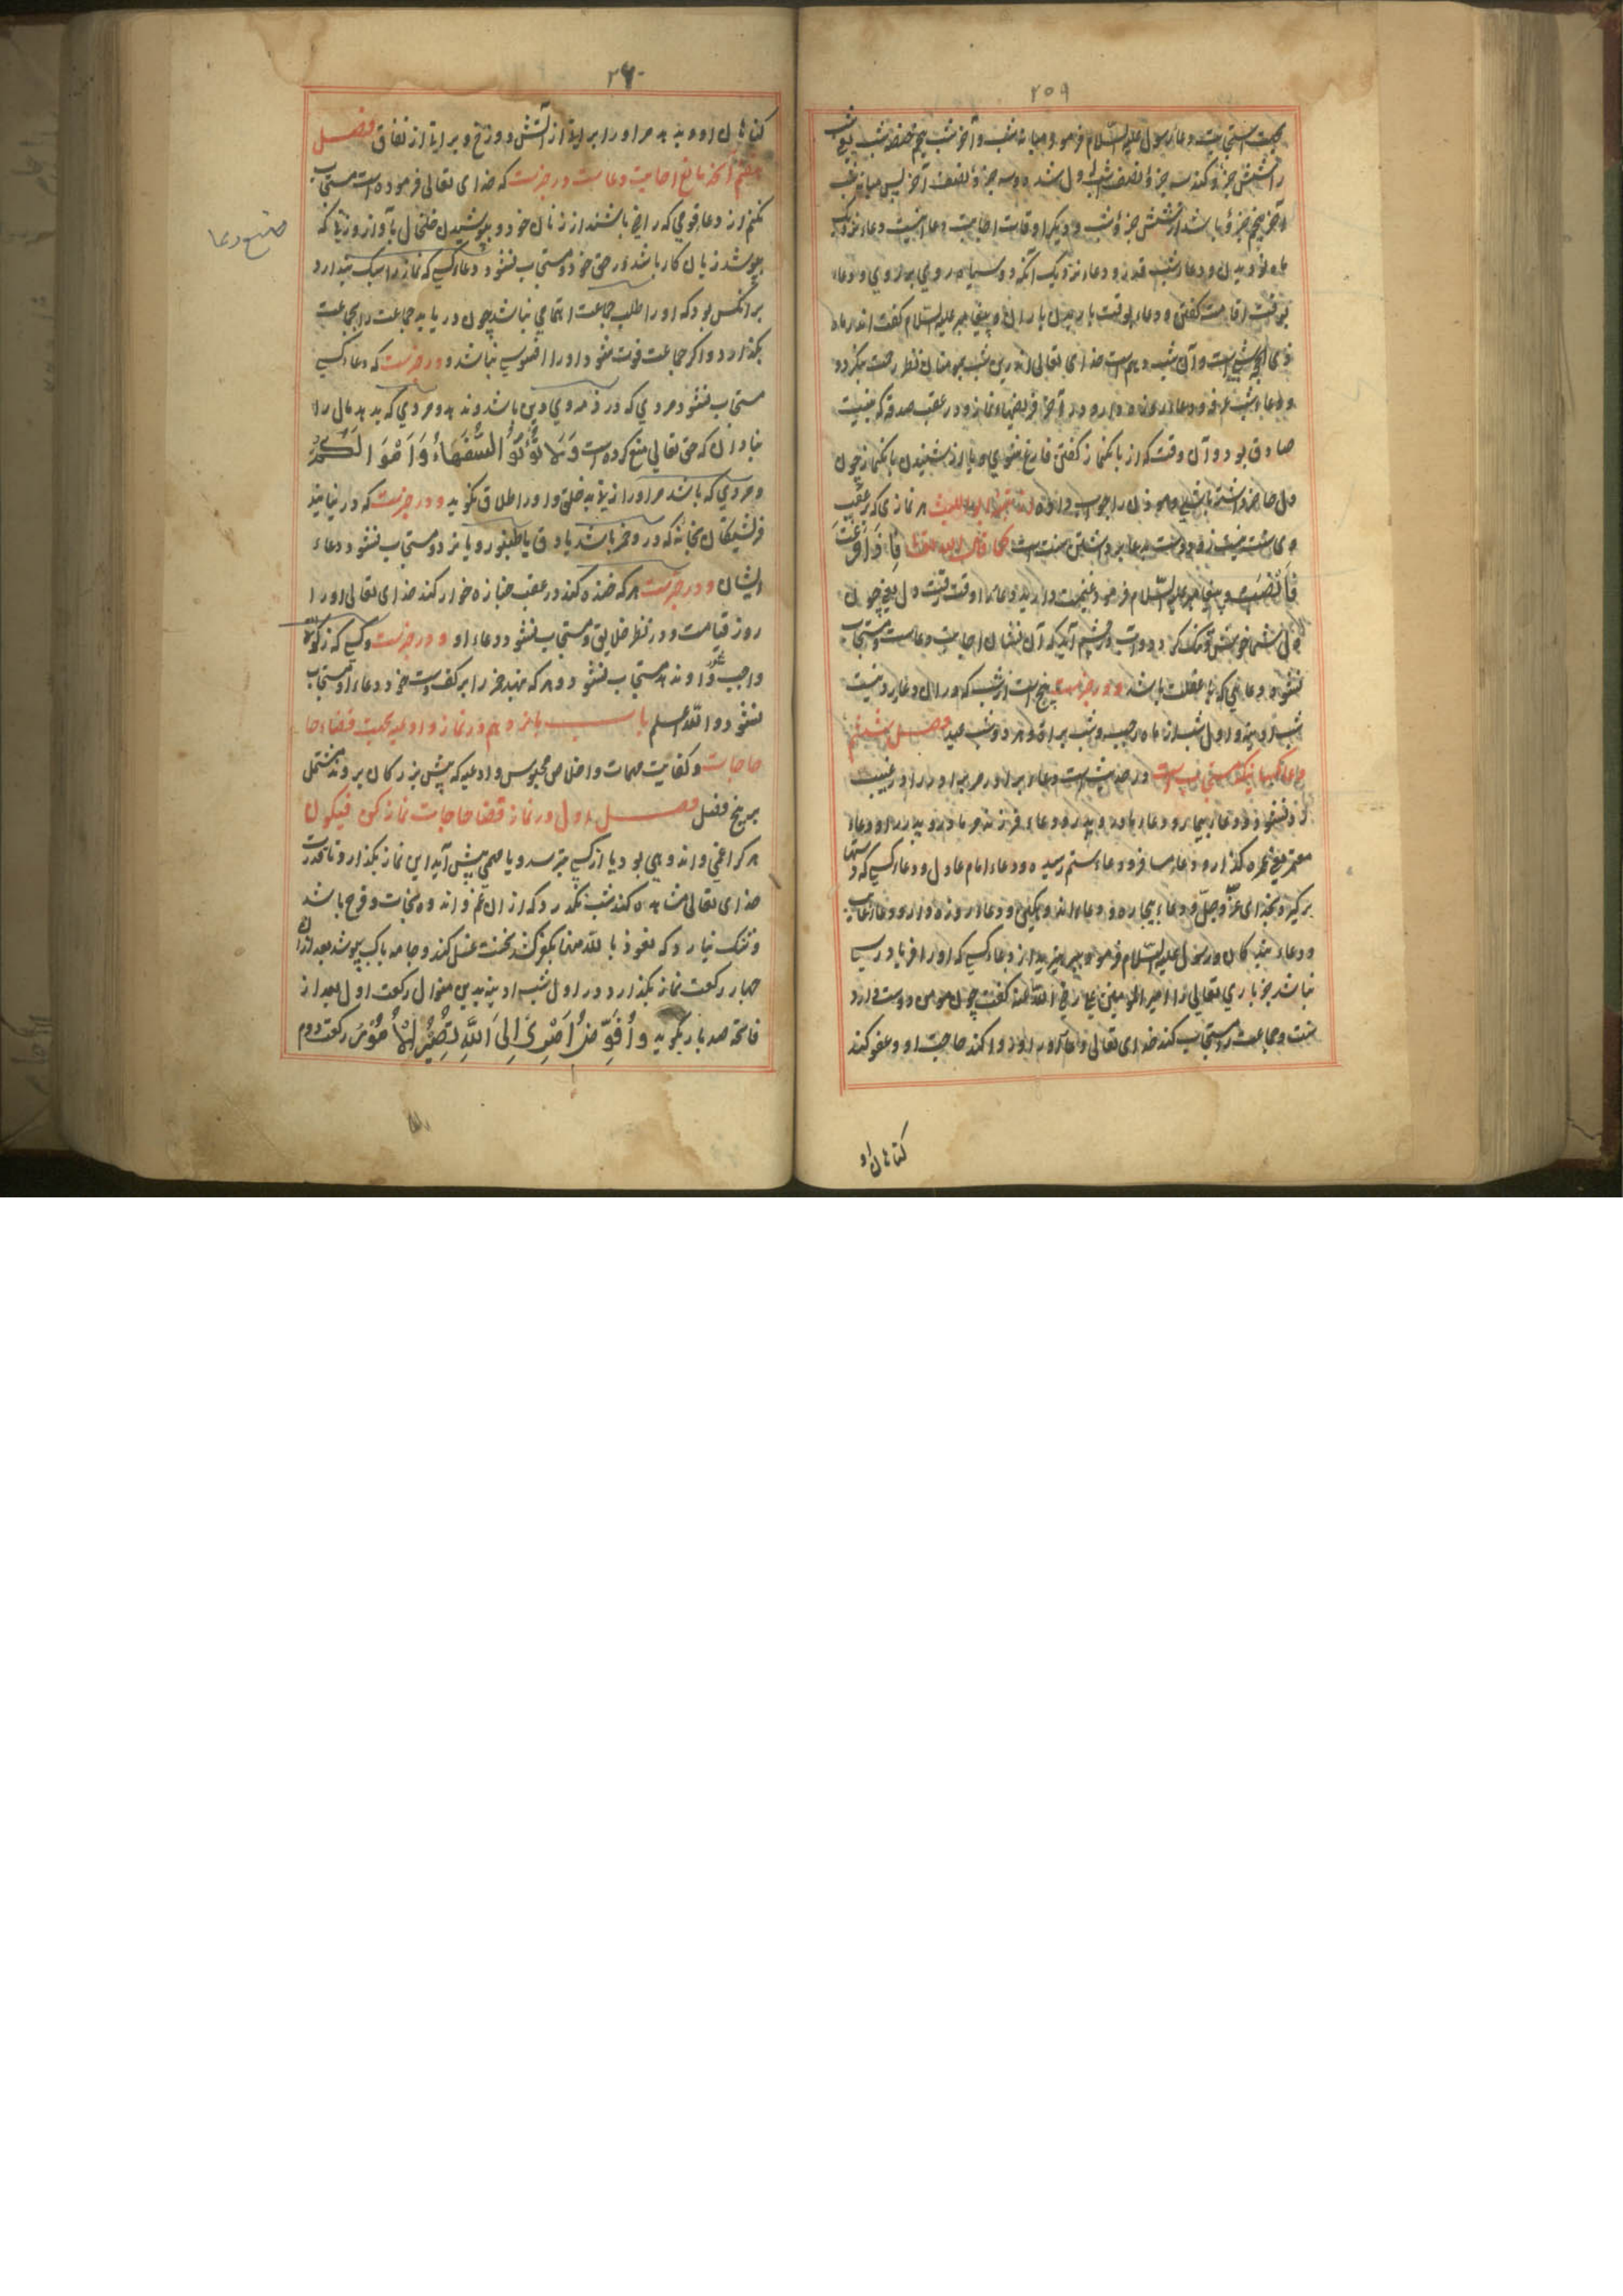 ۲۵۹
جهت استجابت دعا رسول علیه السلام فرمود میانه شب و آخر شب پنجم حصه شب یعنی شب
را شش جزؤ کند سه جزؤ نصف شب اول شد و سه جزؤ نصف آخر پس میانه شب
و آخر پنجم جزؤ باشد از شش جزؤ شب و دیگر اوقات اجابت دعا اینست دعا نزدیک
ماه نو دیدن و دعا شب قدر و دعا نزدیک آنکه دو سپاه روی بر روی و دعاء
بوقت اقامت گفتن و دعاء بوقت باریدن باران و پیغامبر علیه السلام گفت اندر ماه
ذی الحجه شبی است و آن شب دهم است خدای تعالی اندرین شب بمومنان نظر رحمت میکردد
و دعاء شب عرفه و دعاء روزه دار و در آخر فریضها نماز و در عقب صدقه که بنیت
صادق بود و آن وقت که از بانگ نماز گفتن فارغ شوی و یا از شنیدن بانگ نماز چون
دل حاضر داشته باشی و موذن را جواب داده هر نمازی که در عقب
وی سنت نیست زود دست بدعا برداشتن سنت است کما قال الله تعالی فَاِذَا فَرَغْتَ
فَانْصَبْ و پیغامبر علیه السلام فرمود غنیمت دارید دعا را وقت رقت دل یعنی چون
دل شما خوش و تنک گردد و آب در چشم آید که آن نشان اجابت دعاست و مستجاب
نشود دعائی که با غفلت باشد و در خبرست پنج است از شب که در ان دعا رد نیست
شب آدینه و اول شب از ماه رجب و شب برات و هر دو شب عید فصل ششم
دعا کسانیکه مستجاب است در حدیث است دعاء برادر مر برادر را در غیبت
رد نشود و دعا بیمار و دعاء مادر و پدر و دعاء فرزند مر مادر و پدر را و دعاء
معتمر یعنی عمره گذار و دعا مسافر و دعاء ستم رسیده و دعاء امام عادل و دعا کسی که دستها
برگیرد بخدای عزّ و جلّ و دعاء بیچاره و دعاء اندوهگین و دعا روزه دار و دعا غایب
و دعاء نیکان و رسول علیه السلام فرمود بپرهیزید از دعا کسی که او را فریاد رسی
نباشد جز باری تعالی را امیر المومنین علی رضی الله عنه گفت چون مومن دوست دارد
سنت و جماعت را مستجاب کند خدای تعالی دعا او را و روا کند حاجت او و عفو کند
کناهان او
۲۶۰
کناهان او و بدهد مر او را براة از آتش دوزخ و براة از نفاق فصل
هفتم آنکه مانع اجابت دعاست در خبرست که خدای تعالی فرموده است مستجاب
نکنم از دعا قومی که راضی باشند از زنان خود و بپوشیدن خلخال با آواز و زنی که
بپوشد زیان کار باشد در حق خود و مستجاب نشود دعا کسی که نماز را سبک پندارد
بر آنکس بود که او را طلب جماعت اهتمامی نباشد چون دریابد جماعت را بجماعت
بگذارد و اگر جماعت فوت شود او را افسوس نباشد و در خبرست که دعا کسی
مستجاب نشود مردی که در ذمه وی دین باشد و ندهد و مردی که بدهد مال را
بنادان که حق تعالی منع کرده است وَلَا تُؤْتُوا السُّفَهَاءَ اَمْوَالَكُمُ
و مردی که باشد مر او را زنی بد خلق و او را طلاق نگوید و در خبرست که در نیایند
فرشتگان بخانه که درو خمر باشد یا دف یا طنبور و یا نرد و مستجاب نشود دعاء
ایشان و در خبرست هر که خنده کند در عقب جنازه خوار کند خدای تعالی او را
روز قیامت و در نظر خلایق و مستجاب نشود دعاء او و در خبرست کسی که زکوة
واجب شود و ندهد مستجاب نشود و هر که نهد خمر را بر کف دست خود دعاء او مستجاب
نشود والله اعلم باب پانزدهم در نماز و ادعیه بجهت قضاء حا
حاجات و کفایت مهمات و اخلاص محبوس و ادعیه که پیش بزرگان بروند مشتمل
بر پنج فصل فصل اول در نماز قضا حاجات نماز کن فیکون
هر کرا غمی و اندوهی بود یا از کسی بترسد و یا مهمی پیش آید این نماز بگذارد تا قدرت
خدای تعالی مشاهده کند شب نگذرد که از ان غم و اندوه نجات و فرح باشد
و شک نیارد که نعوذ بالله منها بکفر کشد نخست غسل کند و جامه پاک بپوشد بعد از ان
چهار رکعت نماز بگذارد در اول شب ادینه بدین منوال رکعت اول بعد از
فاتحه صد بار بگوید وَاُفَوِّضُ اَمْرِیْ اِلَی اللّٰهِ تَصِیْرُ الْاُمُوْرُ رکعت دوم
منع دعا